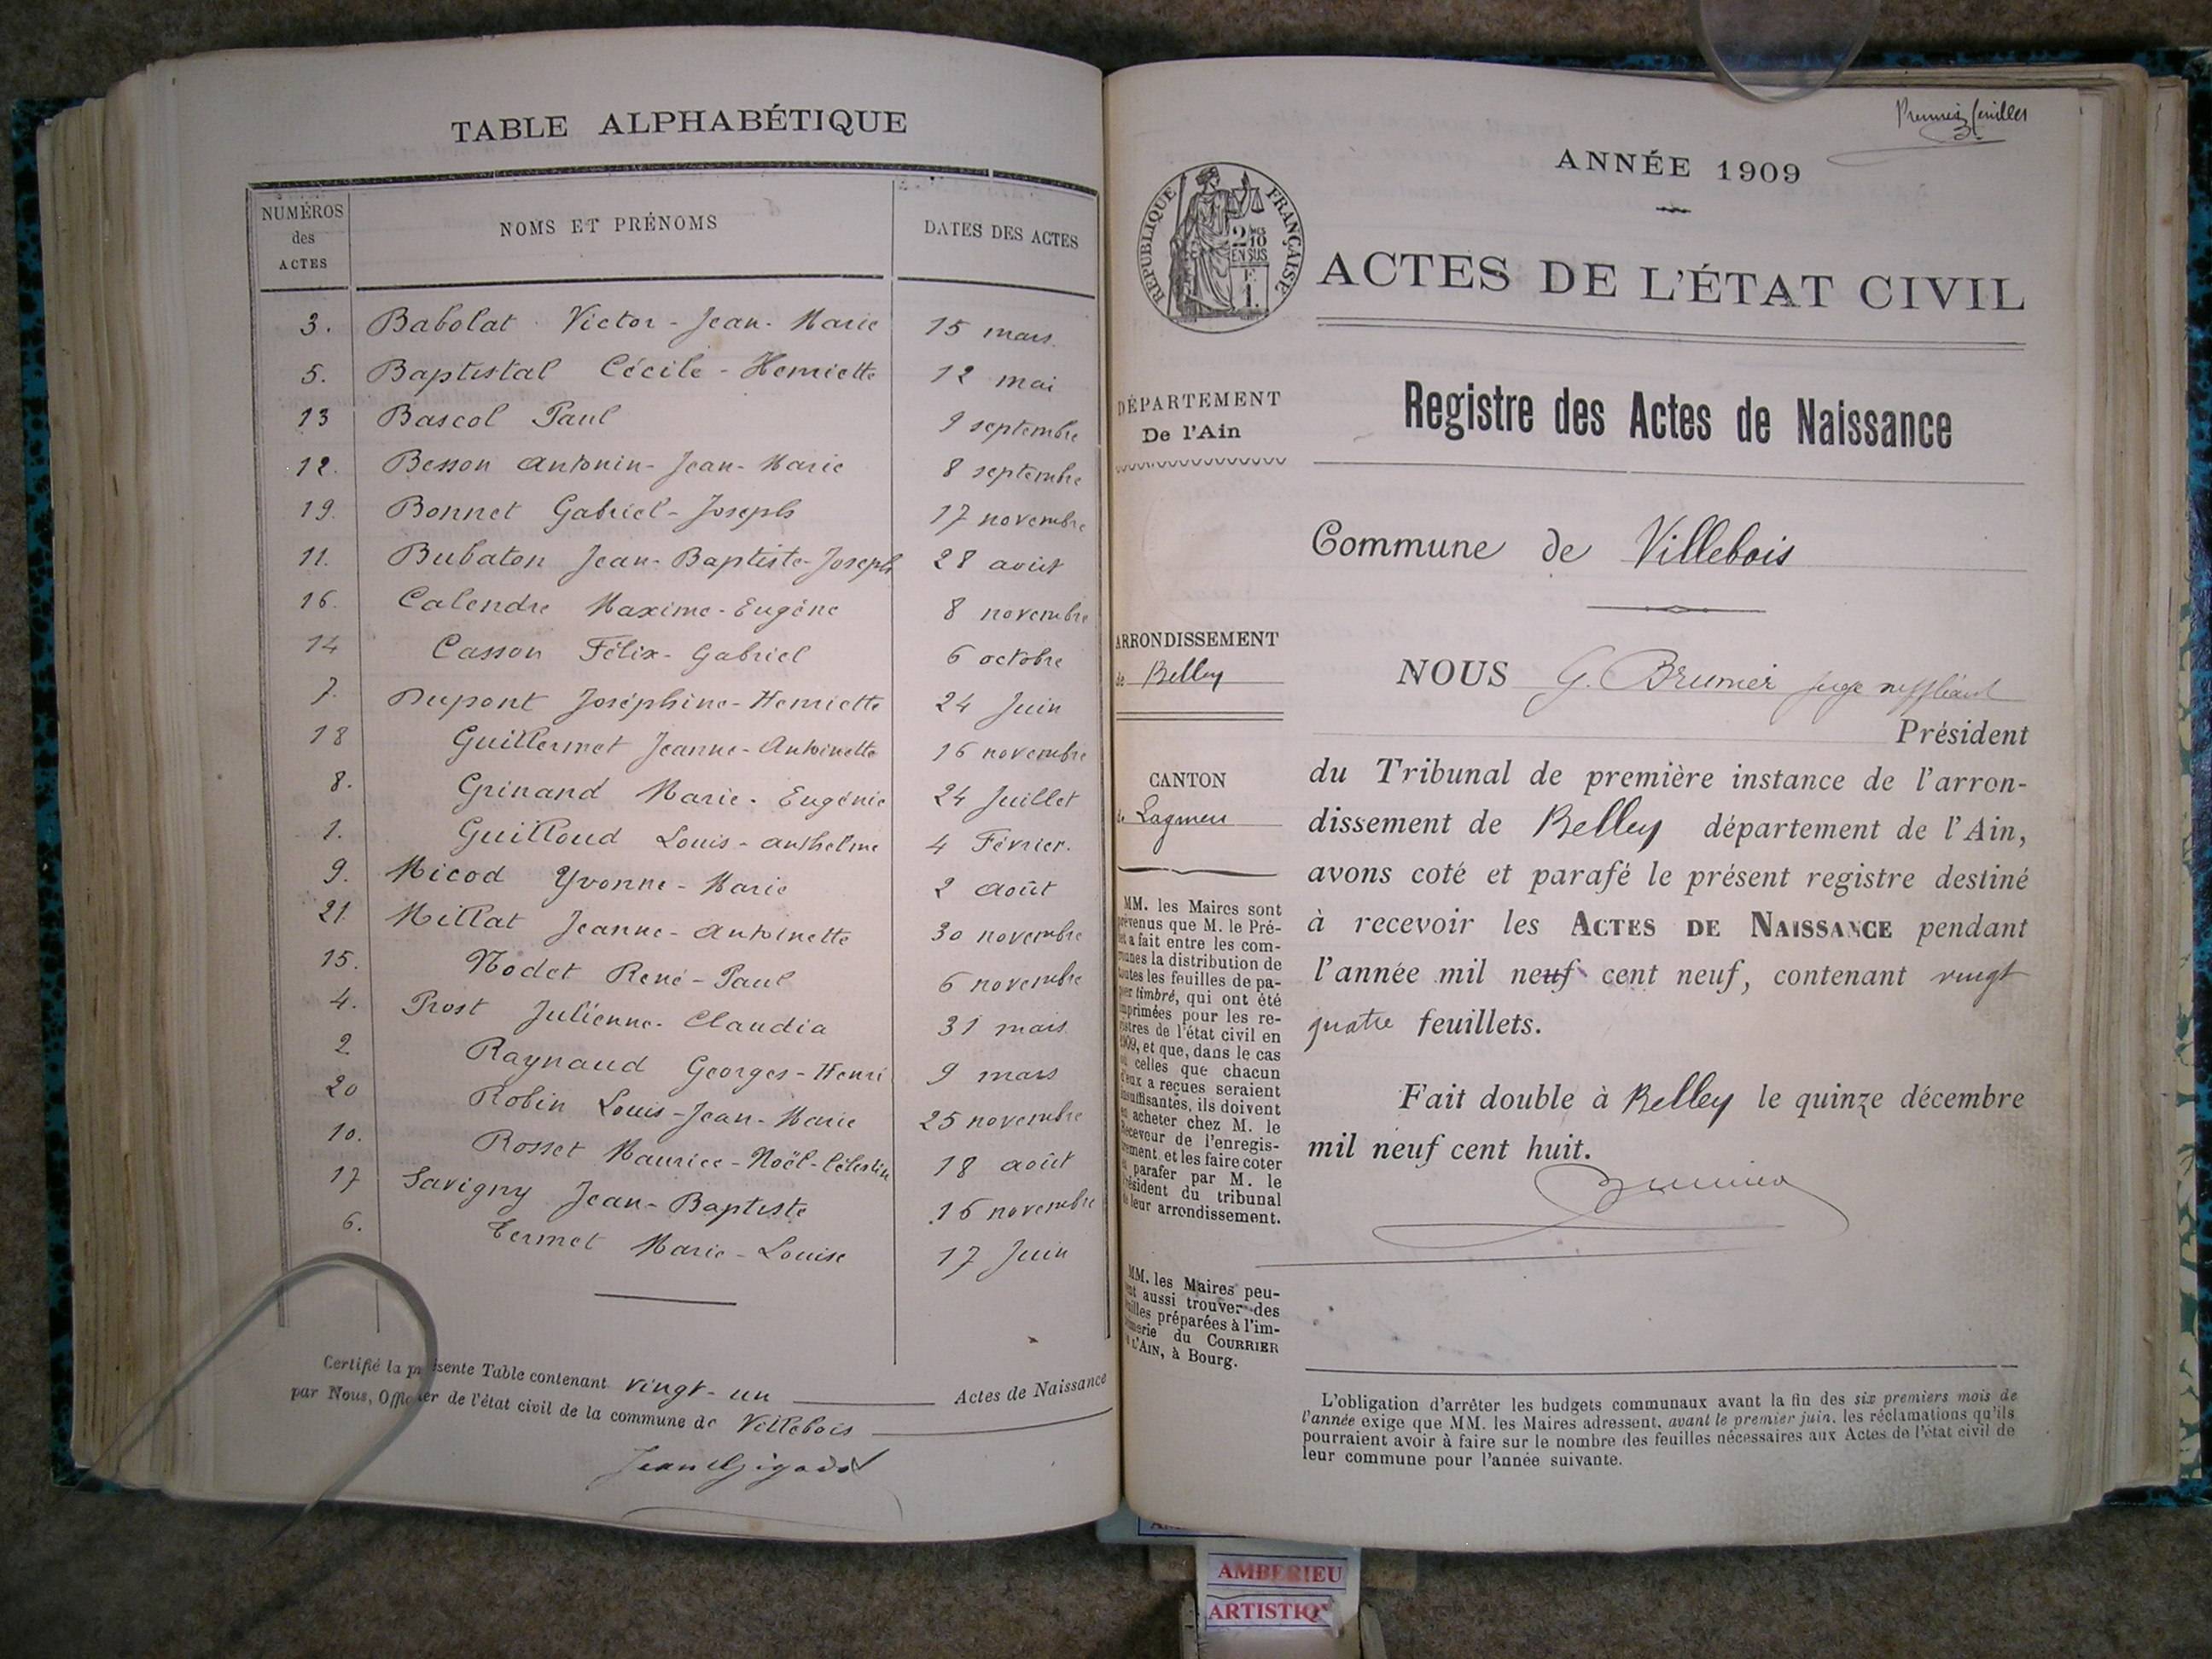 TABLE ALPHABÉTIQUE
NUMÉROS des ACTES
NOMS ET PRÉNOMS
DATES DES ACTES
3. Babolat Victor-Jean-Marie 15 mars
5. Baptistal Cécile-Henriette 12 mai
13 Bascol Paul 9 septembre
12. Besson Antonin-Jean-Marie 8 septembre
19. Bonnet Gabriel-Joseph 17 novembre
11. Bubaton Jean-Baptiste-Joseph 28 août
16. Calendre Maxime-Eugène 8 novembre
14 Casson Félix-Gabriel 6 octobre
7. Dupont Joséphine-Henriette 24 Juin
18 Guillermet Jeanne-Antoinette 16 novembre
8. Grinand Marie-Eugénie 24 Juillet
1. Guilloud Louis-Anthelme 4 Février.
9. Micod Yvonne-Marie 2 août
21 Millat Jeanne-Antoinette 30 novembre
15. Nodet René-Paul 6 novembre
4. Prost Julienne-Claudia 31 mars
2 Raynaud Georges-Henri 9 mars
20 Robin Louis-Jean-Marie 25 novembre
10. Rosset Maurice-Noël-Célestin 18 août
17 Savigny Jean-Baptiste 16 novembre
6. Termet Marie-Louise 17 Juin
Certifié la présente Table contenant vingt-un Actes de Naissance
par Nous, Officier de l'état civil de la commune de Villebois
Premier feuillet
ANNÉE 1909
RÉPUBLIQUE FRANÇAISE
2/10 EN SUS
F.
1.
ACTES DE L'ÉTAT CIVIL
DÉPARTEMENT
De l'Ain
Registre des Actes de Naissance
Commune de Villebois
ARRONDISSEMENT
de Belley
CANTON
de Lagnieu
MM. les Maires sont
prévenus que M. le Pré-
fet a fait entre les com-
munes la distribution de
toutes les feuilles de pa-
pier timbré, qui ont été
imprimées pour les re-
gistres de l'état civil en
1909, et que, dans le cas
où celles que chacun
d'eux a reçues seraient
insuffisantes, ils doivent
en acheter chez M. le
Receveur de l'enregis-
trement et les faire coter
et parafer par M. le
Président du tribunal
de leur arrondissement.
MM. les Maires peu-
vent aussi trouver des
feuilles préparées à l'im-
primerie du COURRIER
DE L'AIN, à Bourg.
NOUS G. Brunier juge suppléant
Président
du Tribunal de première instance de l'arron-
dissement de Belley département de l'Ain,
avons coté et parafé le présent registre destiné
à recevoir les ACTES DE NAISSANCE pendant
l'année mil neuf cent neuf, contenant vingt
quatre feuillets.
Fait double à Belley le quinze décembre
mil neuf cent huit.
Brunier
L'obligation d'arrêter les budgets communaux avant la fin des six premiers mois de
l'année exige que MM. les Maires adressent, avant le premier juin, les réclamations qu'ils
pourraient avoir à faire sur le nombre des feuilles nécessaires aux Actes de l'état civil de
leur commune pour l'année suivante.
AMBERIEU
ARTISTIQ